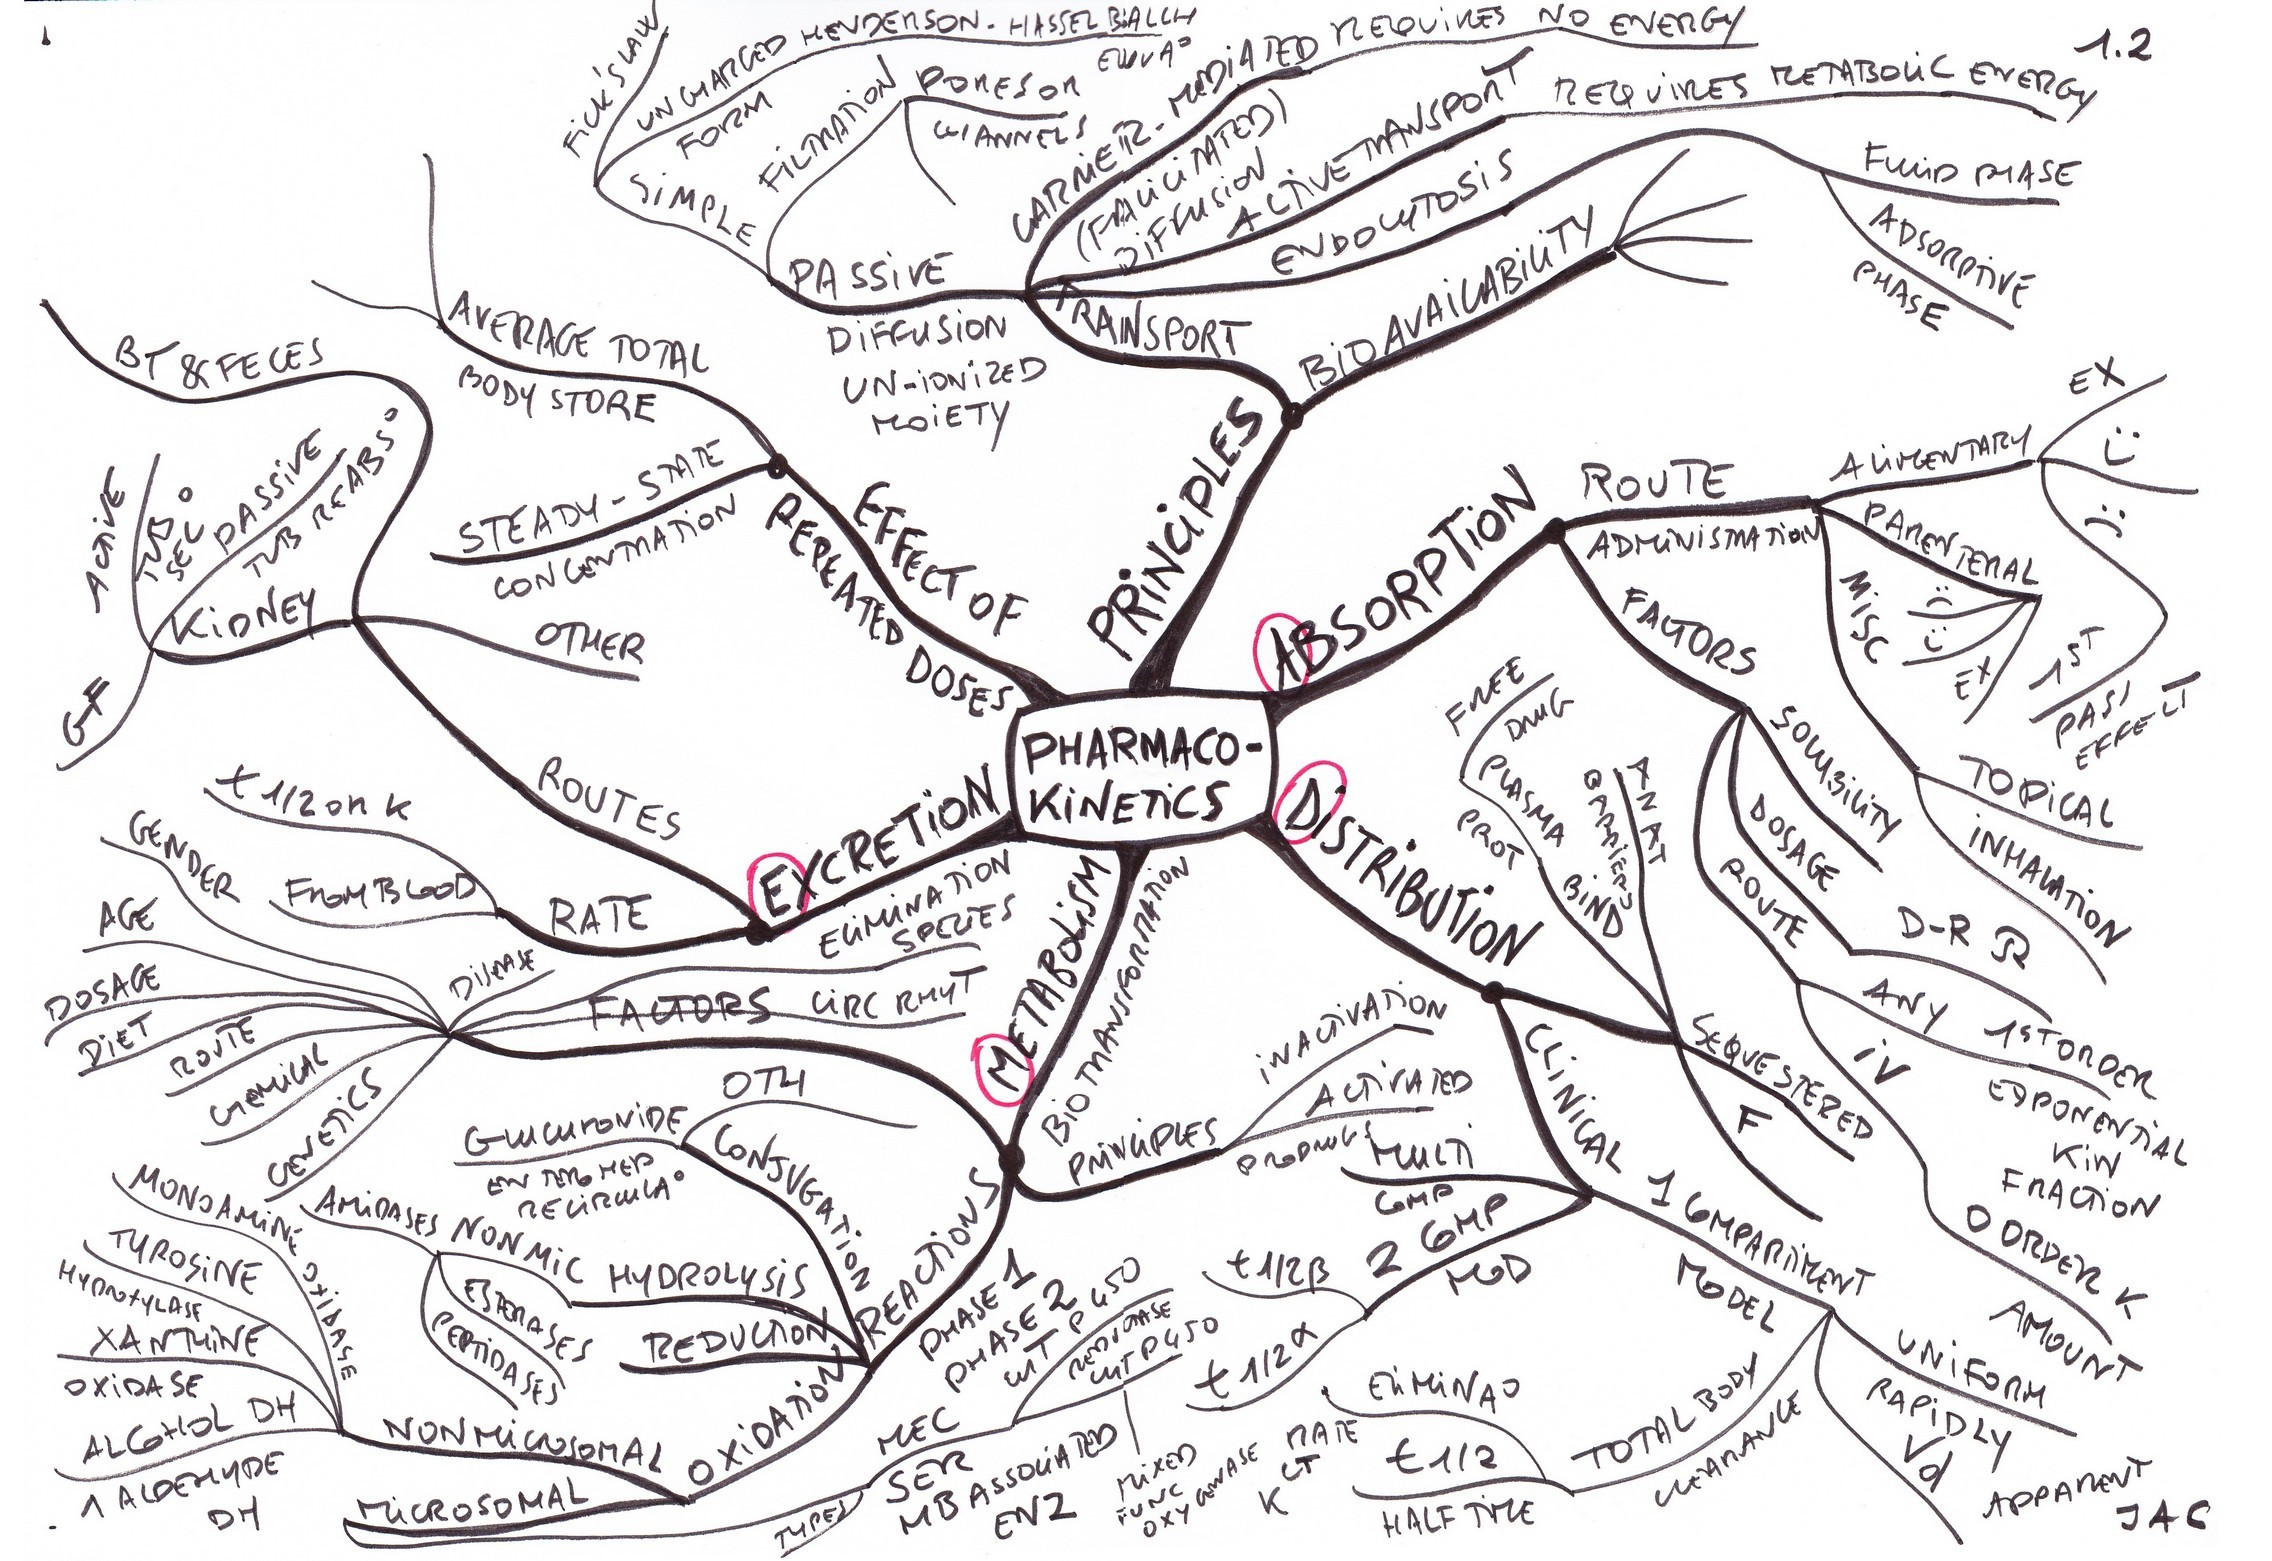 1.2
PHARMACO-
KINETICS
PRINCIPLES
TRANSPORT
PASSIVE
DIFFUSION
UN-IONIZED
MOIETY
SIMPLE
FICK'S LAW
UNCHARGED HENDERSON-HASSELBALCH
FORM
FILTRATION
PORES OR
CHANNELS
CARRIER-MEDIATED REQUIRES NO ENERGY
(FACILITATED)
DIFFUSION
ACTIVE TRANSPORT REQUIRES METABOLIC ENERGY
ENDOCYTOSIS
FLUID PHASE
ADSORPTIVE
PHASE
BIOAVAILABILITY
ABSORPTION
ROUTE
ADMINISTRATION
ALIMENTARY
EX
1ST
PASS
EFFECT
PARENTERAL
EX
MISC
TOPICAL
INHALATION
FACTORS
SOLUBILITY
DOSAGE
D-R
ROUTE
ANY 1ST ORDER
EXPONENTIAL
KIN
FRACTION
IV
0 ORDER K
AMOUNT
DISTRIBUTION
FREE
DRUG
PLASMA
PROT
BIND
ANAT
BARRIERS
SEQUESTERED
F
CLINICAL
1 COMPARTIMENT
MODEL
UNIFORM
RAPIDLY
Vd
APPARENT
TOTAL BODY
CLEARANCE
ELIMINA°
RATE
CT
K
t 1/2
HALF TIME
2 COMP
MOD
t 1/2 β
t 1/2 α
MULTI
COMP
METABOLISM
BIOTRANSFORMATION
PRINCIPLES
INACTIVATION
ACTIVATED
PRODRUGS
REACTIONS
PHASE 1
PHASE 2
CONJUGATION
OTH
GLUCURONIDE
ENTEROHEP
RECIRCULA°
HYDROLYSIS
NON MIC
AMIDASES
ESTERASES
PEPTIDASES
REDUCTION
OXIDATION
NONMICROSOMAL
MONOAMINE OXIDASE
TYROSINE
HYDROXYLASE
XANTHINE
OXIDASE
ALCOHOL DH
1 ALDEHYDE
DH
MICROSOMAL
TYPES
MEC
SER
MB ASSOCIATED
ENZ
CYT P 450
REDUCTASE
CYT P450
MIXED
FUNC
OXYGENASE
FACTORS
SPECIES
CIRC RHYT
DISEASE
GENDER
AGE
DOSAGE
DIET
ROUTE
CHEMICAL
GENETICS
EXCRETION
ELIMINATION
RATE
t 1/2 OR K
FROM BLOOD
ROUTES
OTHER
KIDNEY
GF
ACTIVE
TUB
SEC°
PASSIVE
TUB REABS°
BT & FECES
EFFECT OF
REPEATED DOSES
AVERAGE TOTAL
BODY STORE
STEADY-STATE
CONCENTRATION
JAC